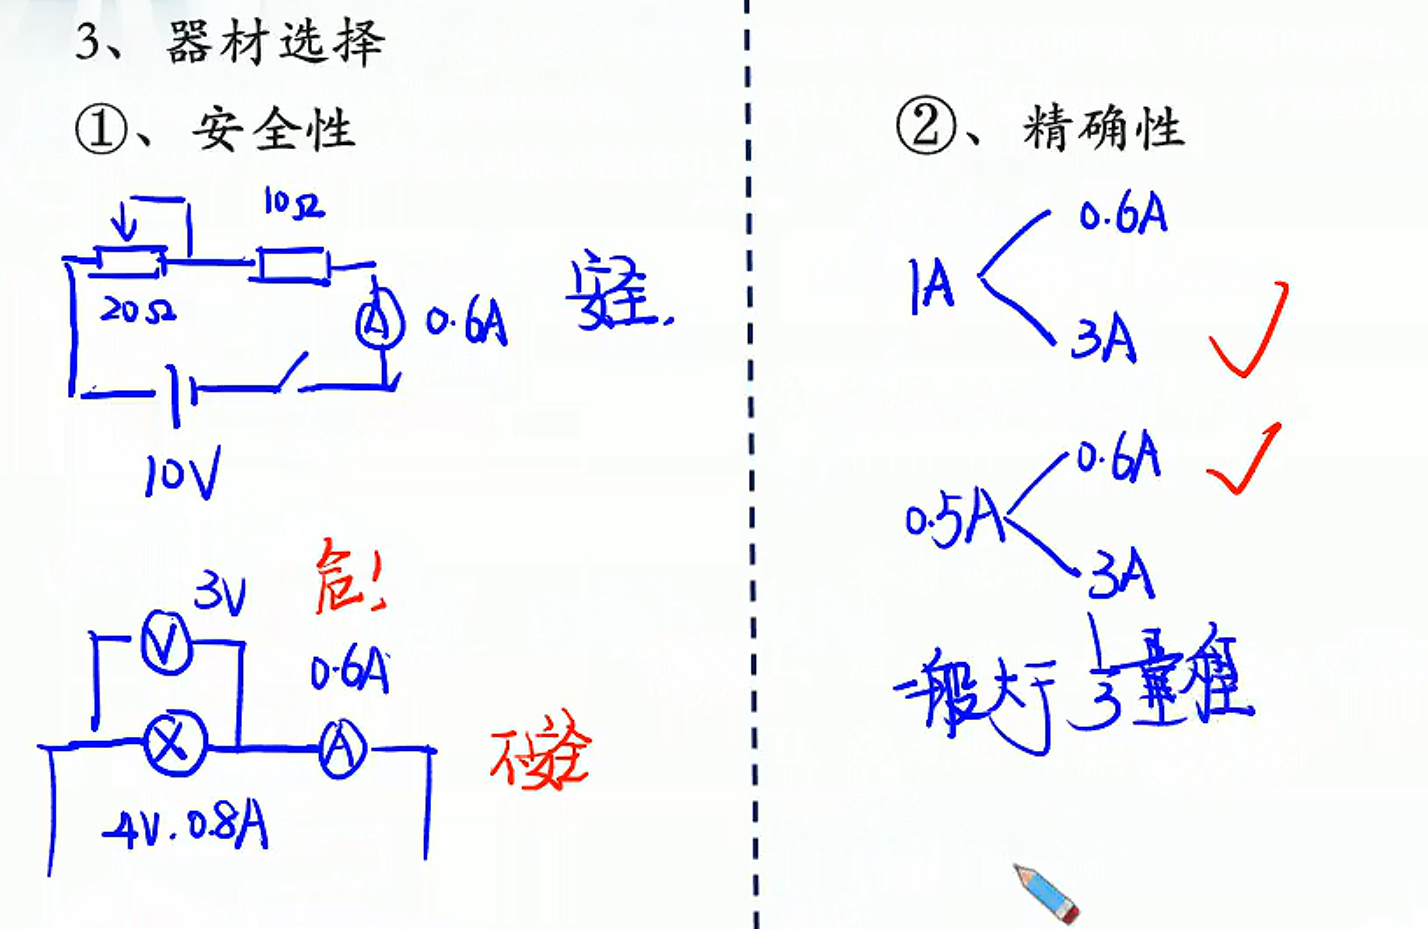 3、器材选择
①、安全性
10Ω
20Ω
A
0.6A
安全.
10V
3V
危!
V
0.6A
A
不安全
4V.0.8A
②、精确性
1A
0.6A
3A
0.5A
0.6A
3A
一般大于1/3量程